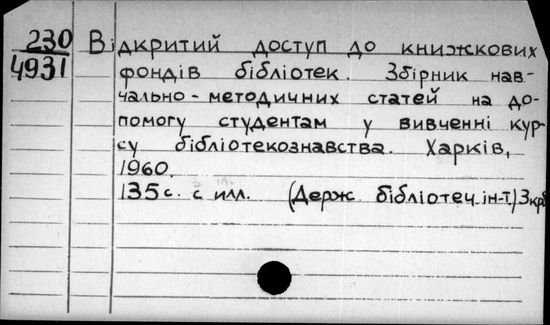 230
4931
Відкритий доступ до книжкових
фондів бібліотек. Збірник нав-
чально-методичних статей на до-
помогу студентам у вивченні кур-
су бібліотекознавства. Харків,
1960.
135 с. с илл. (Держ. бібліотеч. ін-т.)